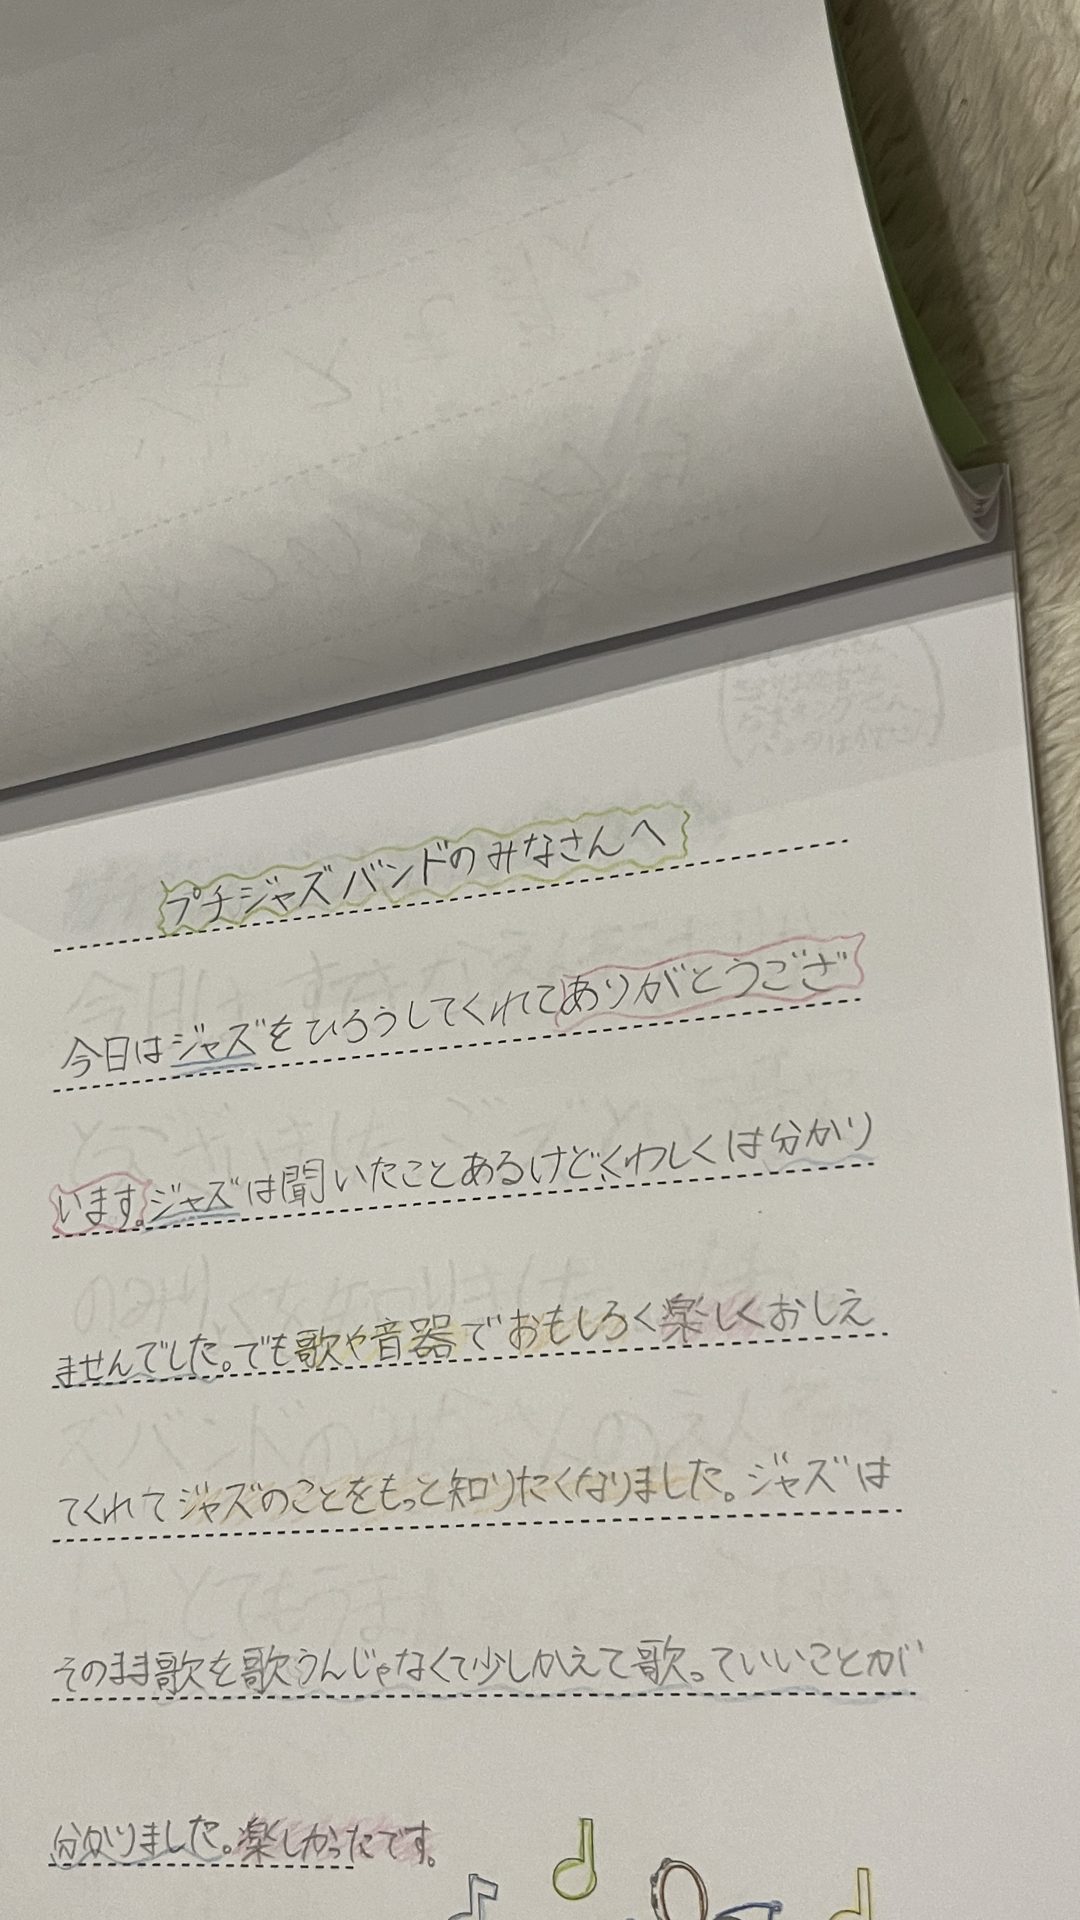 プチジャズバンドのみなさんへ
今日はジャズをひろうしてくれてありがとうござ
います。ジャズは聞いたことあるけど、くわしくは分かり
ませんでした。でも歌や音器でおもしろく楽しくおしえ
てくれてジャズのことをもっと知りたくなりました。ジャズは
そのまま歌を歌うんじゃなくて少しかえて歌。ていいことが
分かりました。楽しかったです。